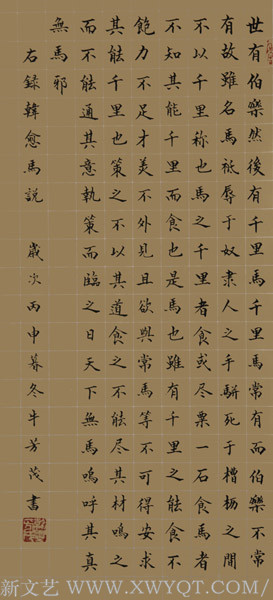 世有伯樂然後有千里馬千里馬常有而伯樂不常
有故雖名馬祗辱于奴隸人之手駢死于槽櫪之間
不以千里稱也馬之千里者食或尽粟一石食馬者
不知其能千里而食也是馬也雖有千里之能食不
飽力不足才美不外見且欲與常馬等不可得安求
其能千里也策之不以其道食之不能尽其材鳴之
而不能通其意執策而臨之曰天下無馬嗚呼其真
無馬邪
右録韓愈馬説 歲次丙申冬牛芳茂書
新文艺/www.XWYQT.COM/